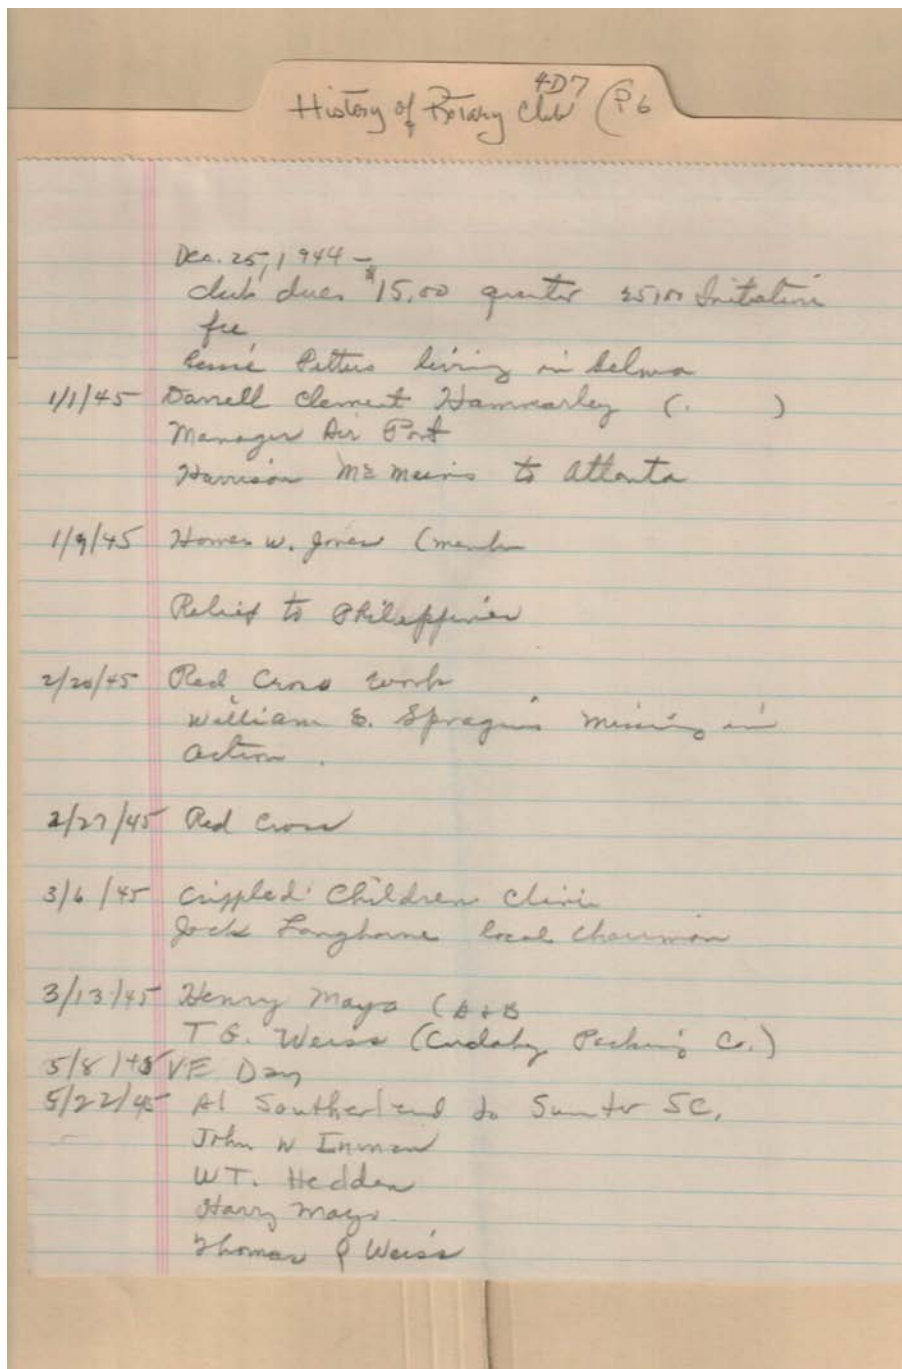 4D7
History of Rotary Club (P6
Dec. 25, 1944 –
club dues $15.00 quarter 25.00 Initiation
fee
Pettus living in Selma
1/1/45 Darrell Clement ( )
Manager Air Port
Harrison to Atlanta
1/9/45 Homer W. Jones (memb
Relief to Philippines
2/20/45 Red Cross work
William E. missing in
action.
2/27/45 Red Cross
3/6/45 Crippled Children Clinic
Jack Langhorne local chairman
3/13/45 Henry Mays (A+B
T G. Weiss (Cudahy Packing Co.)
5/8/45 VE Day
5/22/45 Al Southerland to Sumter SC,
John W Inman
WT. Hedden
Harry Mays
Thomas Weiss